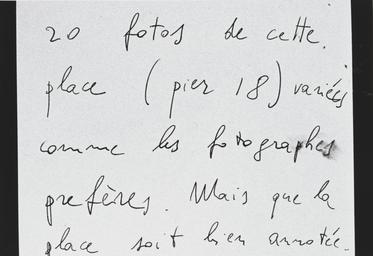 20 fotos de cette.
place (pier 18) variées
comme les fotographes
prefères. Mais que la
place soit bien annotée.